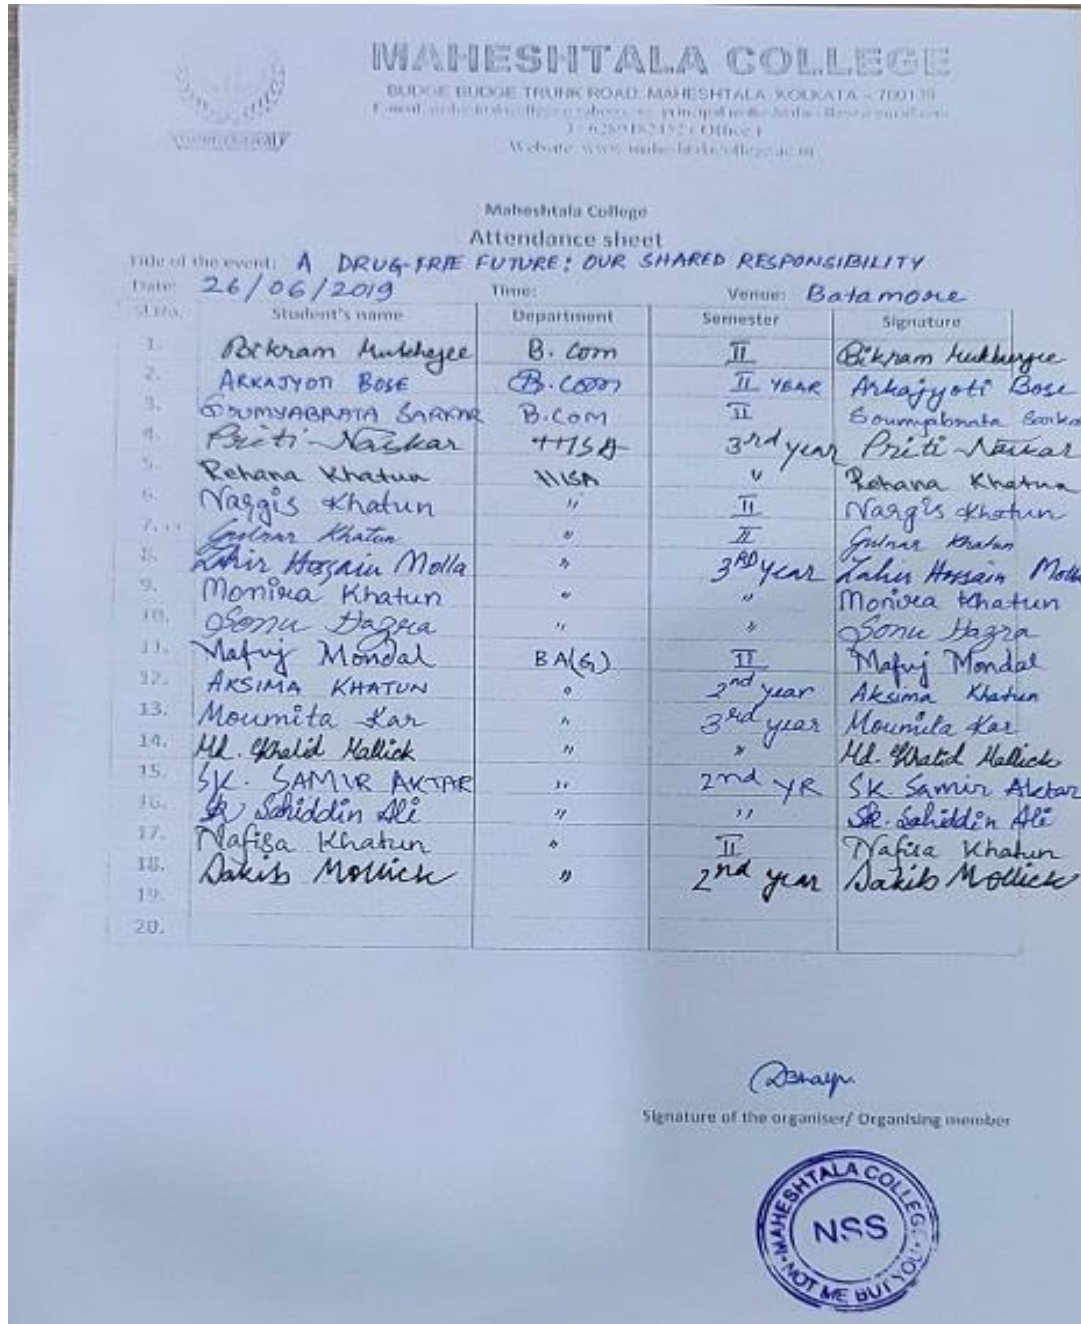 MAHESHTALA COLLEGE
BUDGE BUDGE TRUNK ROAD, MAHESHTALA, KOLKATA - 700139
Maheshtala College
Attendance sheet
Title of the event: A DRUG-FREE FUTURE: OUR SHARED RESPONSIBILITY
Date: 26/06/2019 Time: Venue: Batamore
Sl.no. Student's name Department Semester Signature
1. Bikram Mukherjee B. Com II Bikram Mukherjee
2. ARKAJYOTI BOSE B.COM II YEAR Arkajyoti Bose
3. SOUMYABRATA SARKAR B.COM II Soumyabrata Sarkar
4. Priti Naskar HISA 3rd year Priti Naskar
5. Rehana Khatun HISA " Rehana Khatun
6. Nargis Khatun " II Nargis Khatun
7. Gulnar Khatun " II Gulnar Khatun
8. Zahir Hossain Molla " 3RD year Zahir Hossain Molla
9. Monira Khatun " " Monira Khatun
10. Sonu Hazra " " Sonu Hazra
11. Mafuj Mondal BA(G) II Mafuj Mondal
12. AKSIMA KHATUN " 2nd year Aksima Khatun
13. Moumita Kar " 3rd year Moumita Kar
14. Md. Khalid Mallick " " Md. Khalid Mallick
15. SK. SAMIR AKTAR " 2nd YR SK Samir Aktar
16. Sk Sahiddin Ali " " Sk. Sahiddin Ali
17. Nafisa Khatun " II Nafisa Khatun
18. Sakib Mollick " 2nd year Sakib Mollick
19.
20.
Signature of the organiser/ Organising member
MAHESHTALA COLLEGE
NSS
NOT ME BUT YOU